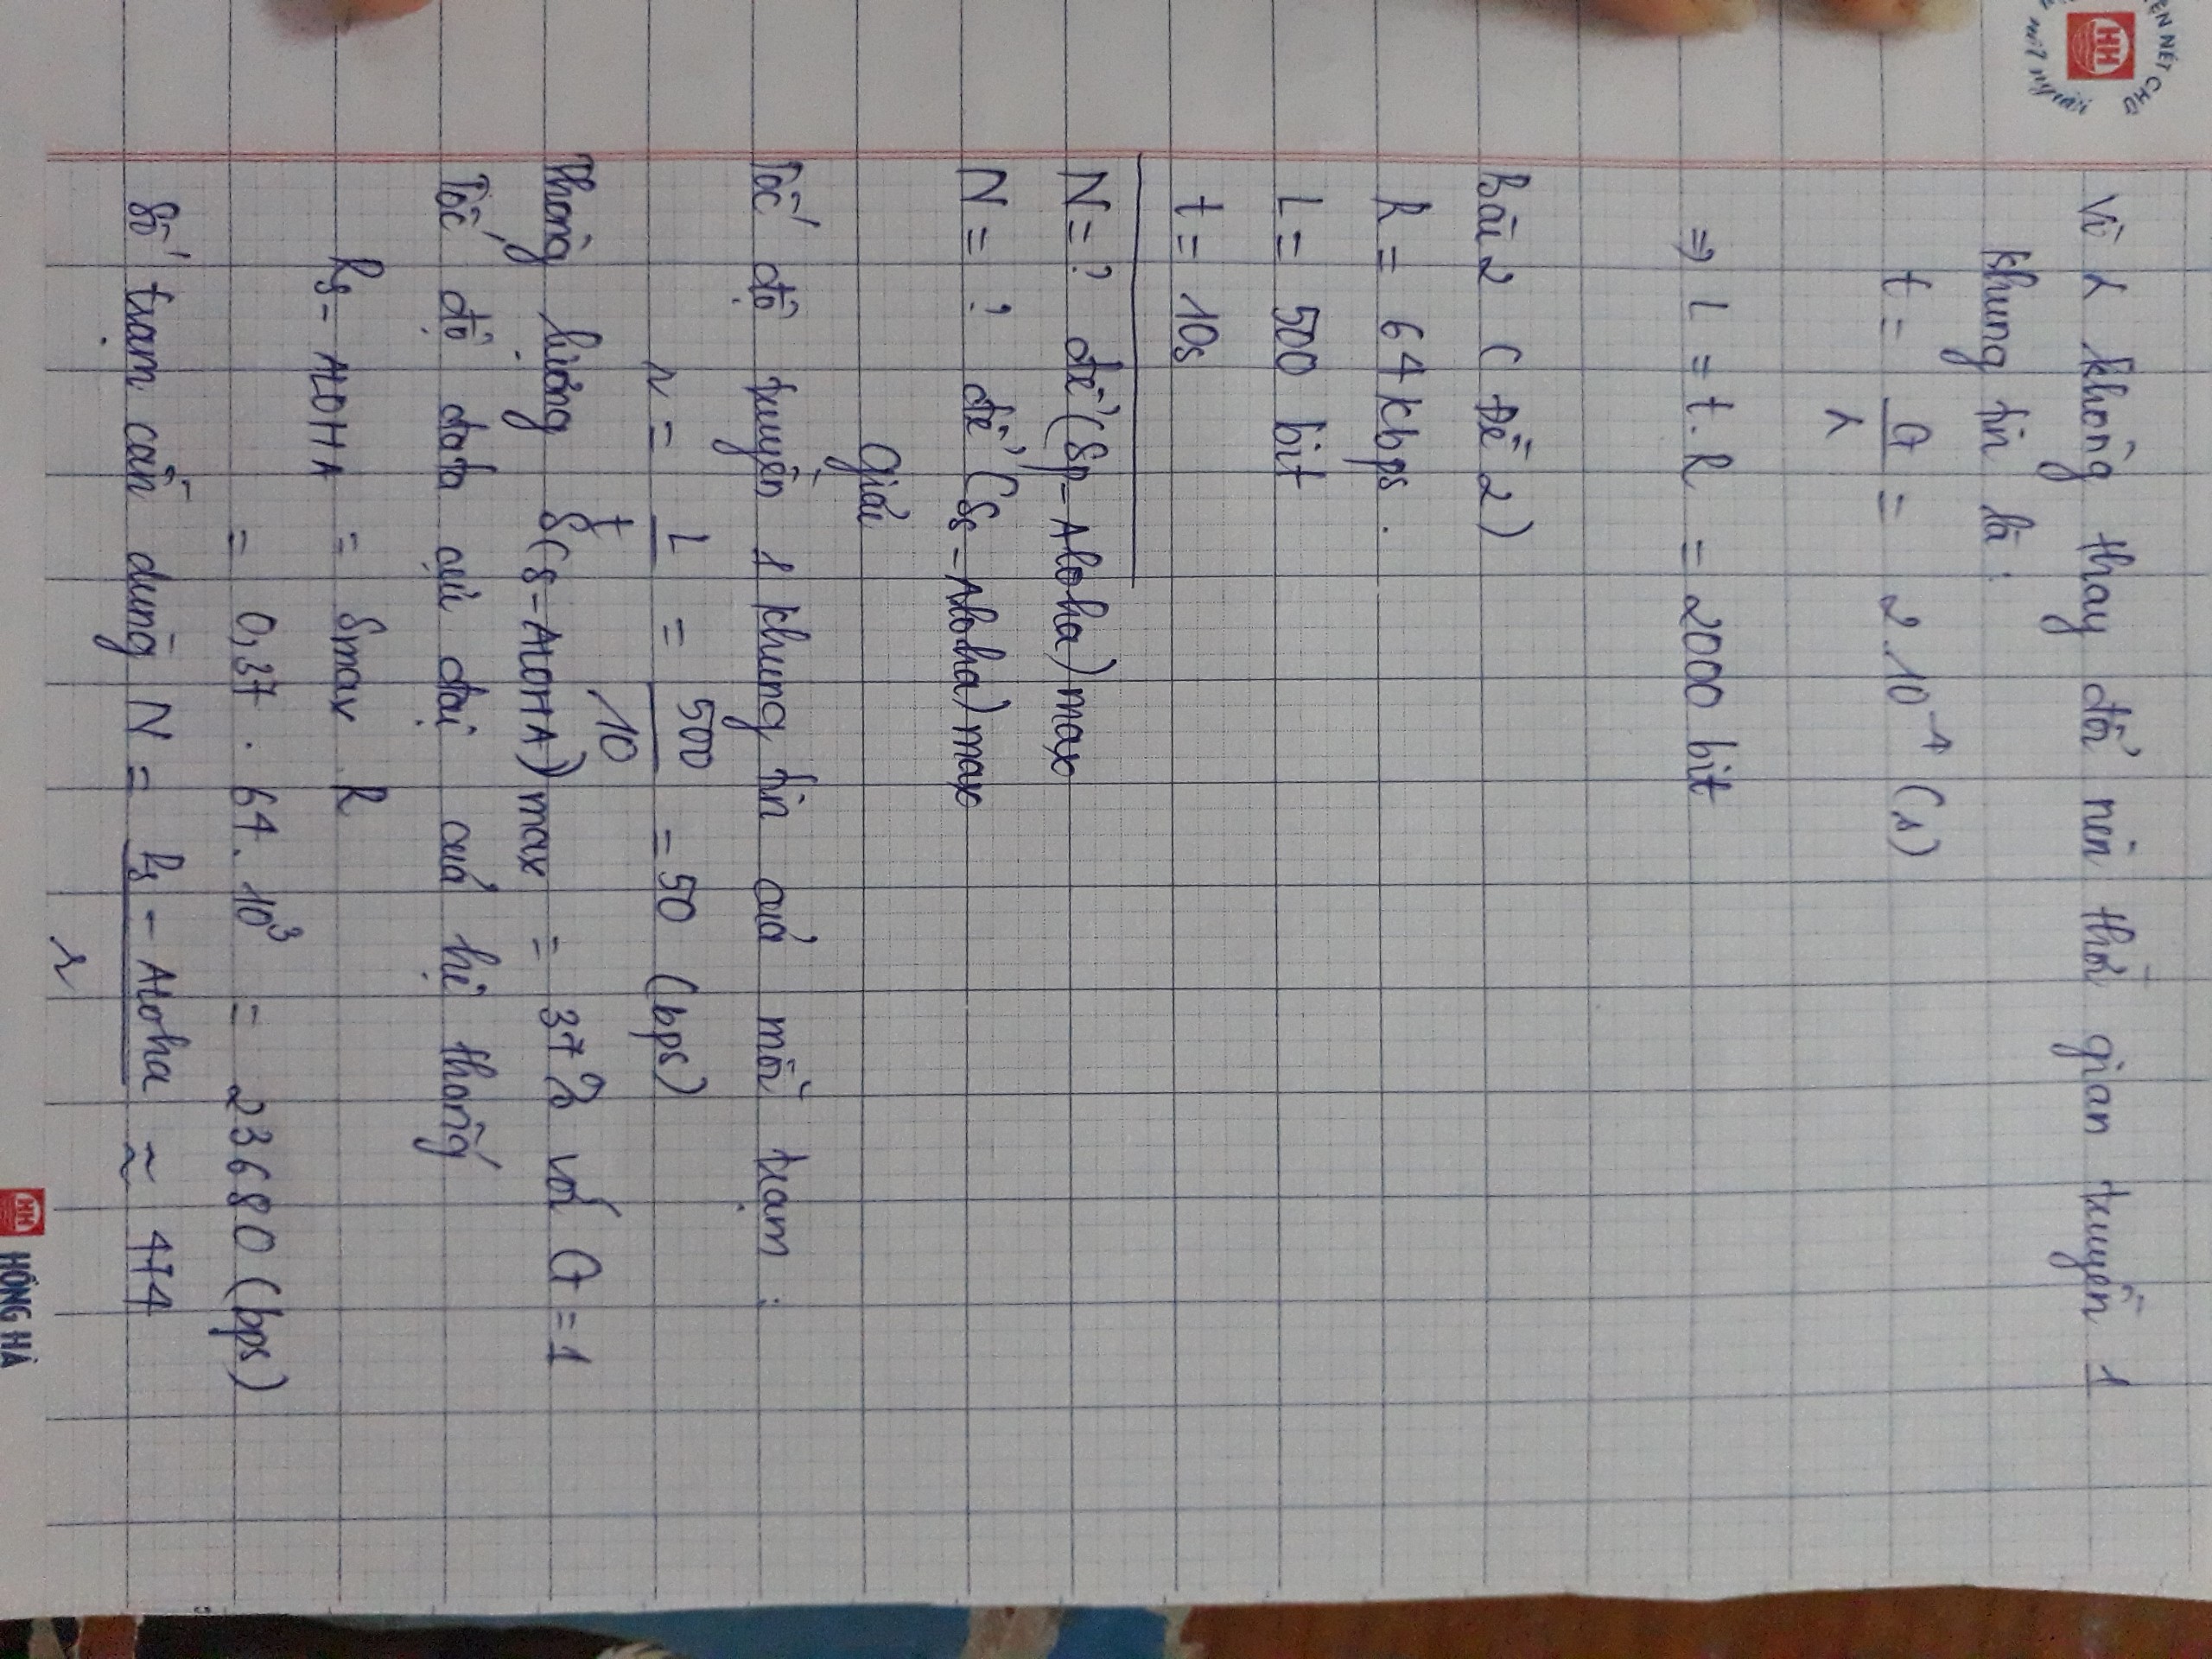 ỆN NÉT CHỮ
HH
nết người
Vì λ không thay đổi nên thời gian truyền 1
khung tin là :
t = G/λ = 2.10⁻⁴ (s)
⇒ L = t. R = 2000 bit
Bài 2 ( Đề 2)
R = 64 kbps .
L = 500 bit
t = 10s
N = ? để (Sp-Aloha) max
N = ? để (Ss-Aloha) max
Giải
Tốc độ truyền 1 khung tin của mỗi trạm :
r = L/t = 500/10 = 50 (bps)
Thông lượng S(S-ALOHA) max = 37% với G = 1
Tốc độ data cực đại của hệ thống
Rs-ALOHA = Smax . R
= 0,37 . 64. 10³ = 23680 (bps)
Số trạm cần dùng N = Rs - Aloha/r ≈ 474
HH HỒNG HÀ